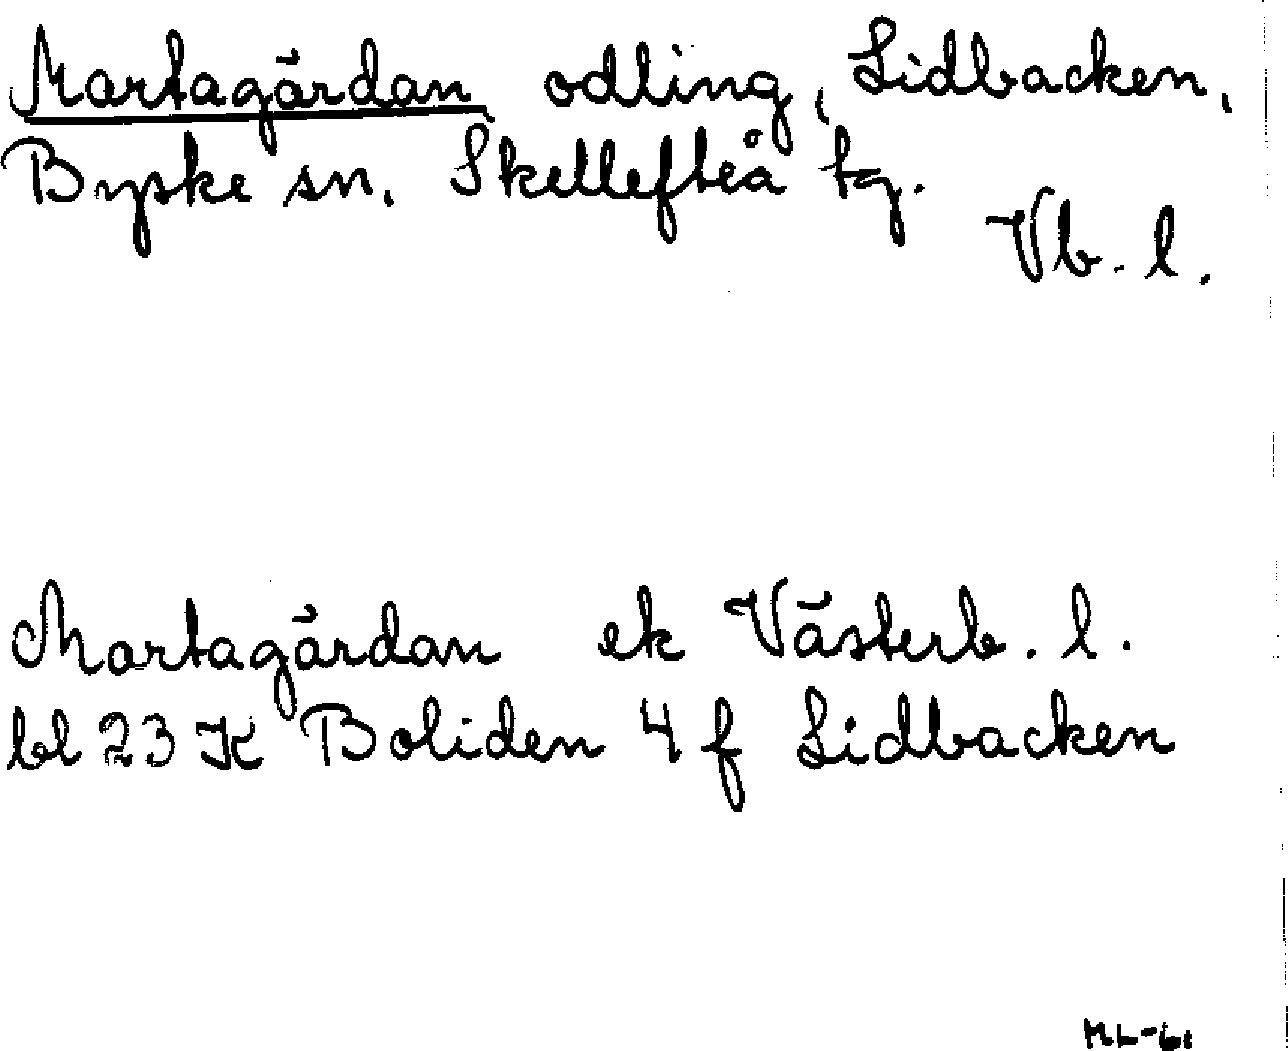 Martagärdan odling, Lidbacken,
Byske sn. Skellefteå tg.
Vb. l.
Martagärdan ek Västerb. l.
bl 23 K Boliden 4 f Lidbacken
ML-61